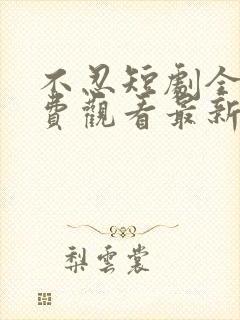 不忍短劇全
費觀看最新
梨雲裳